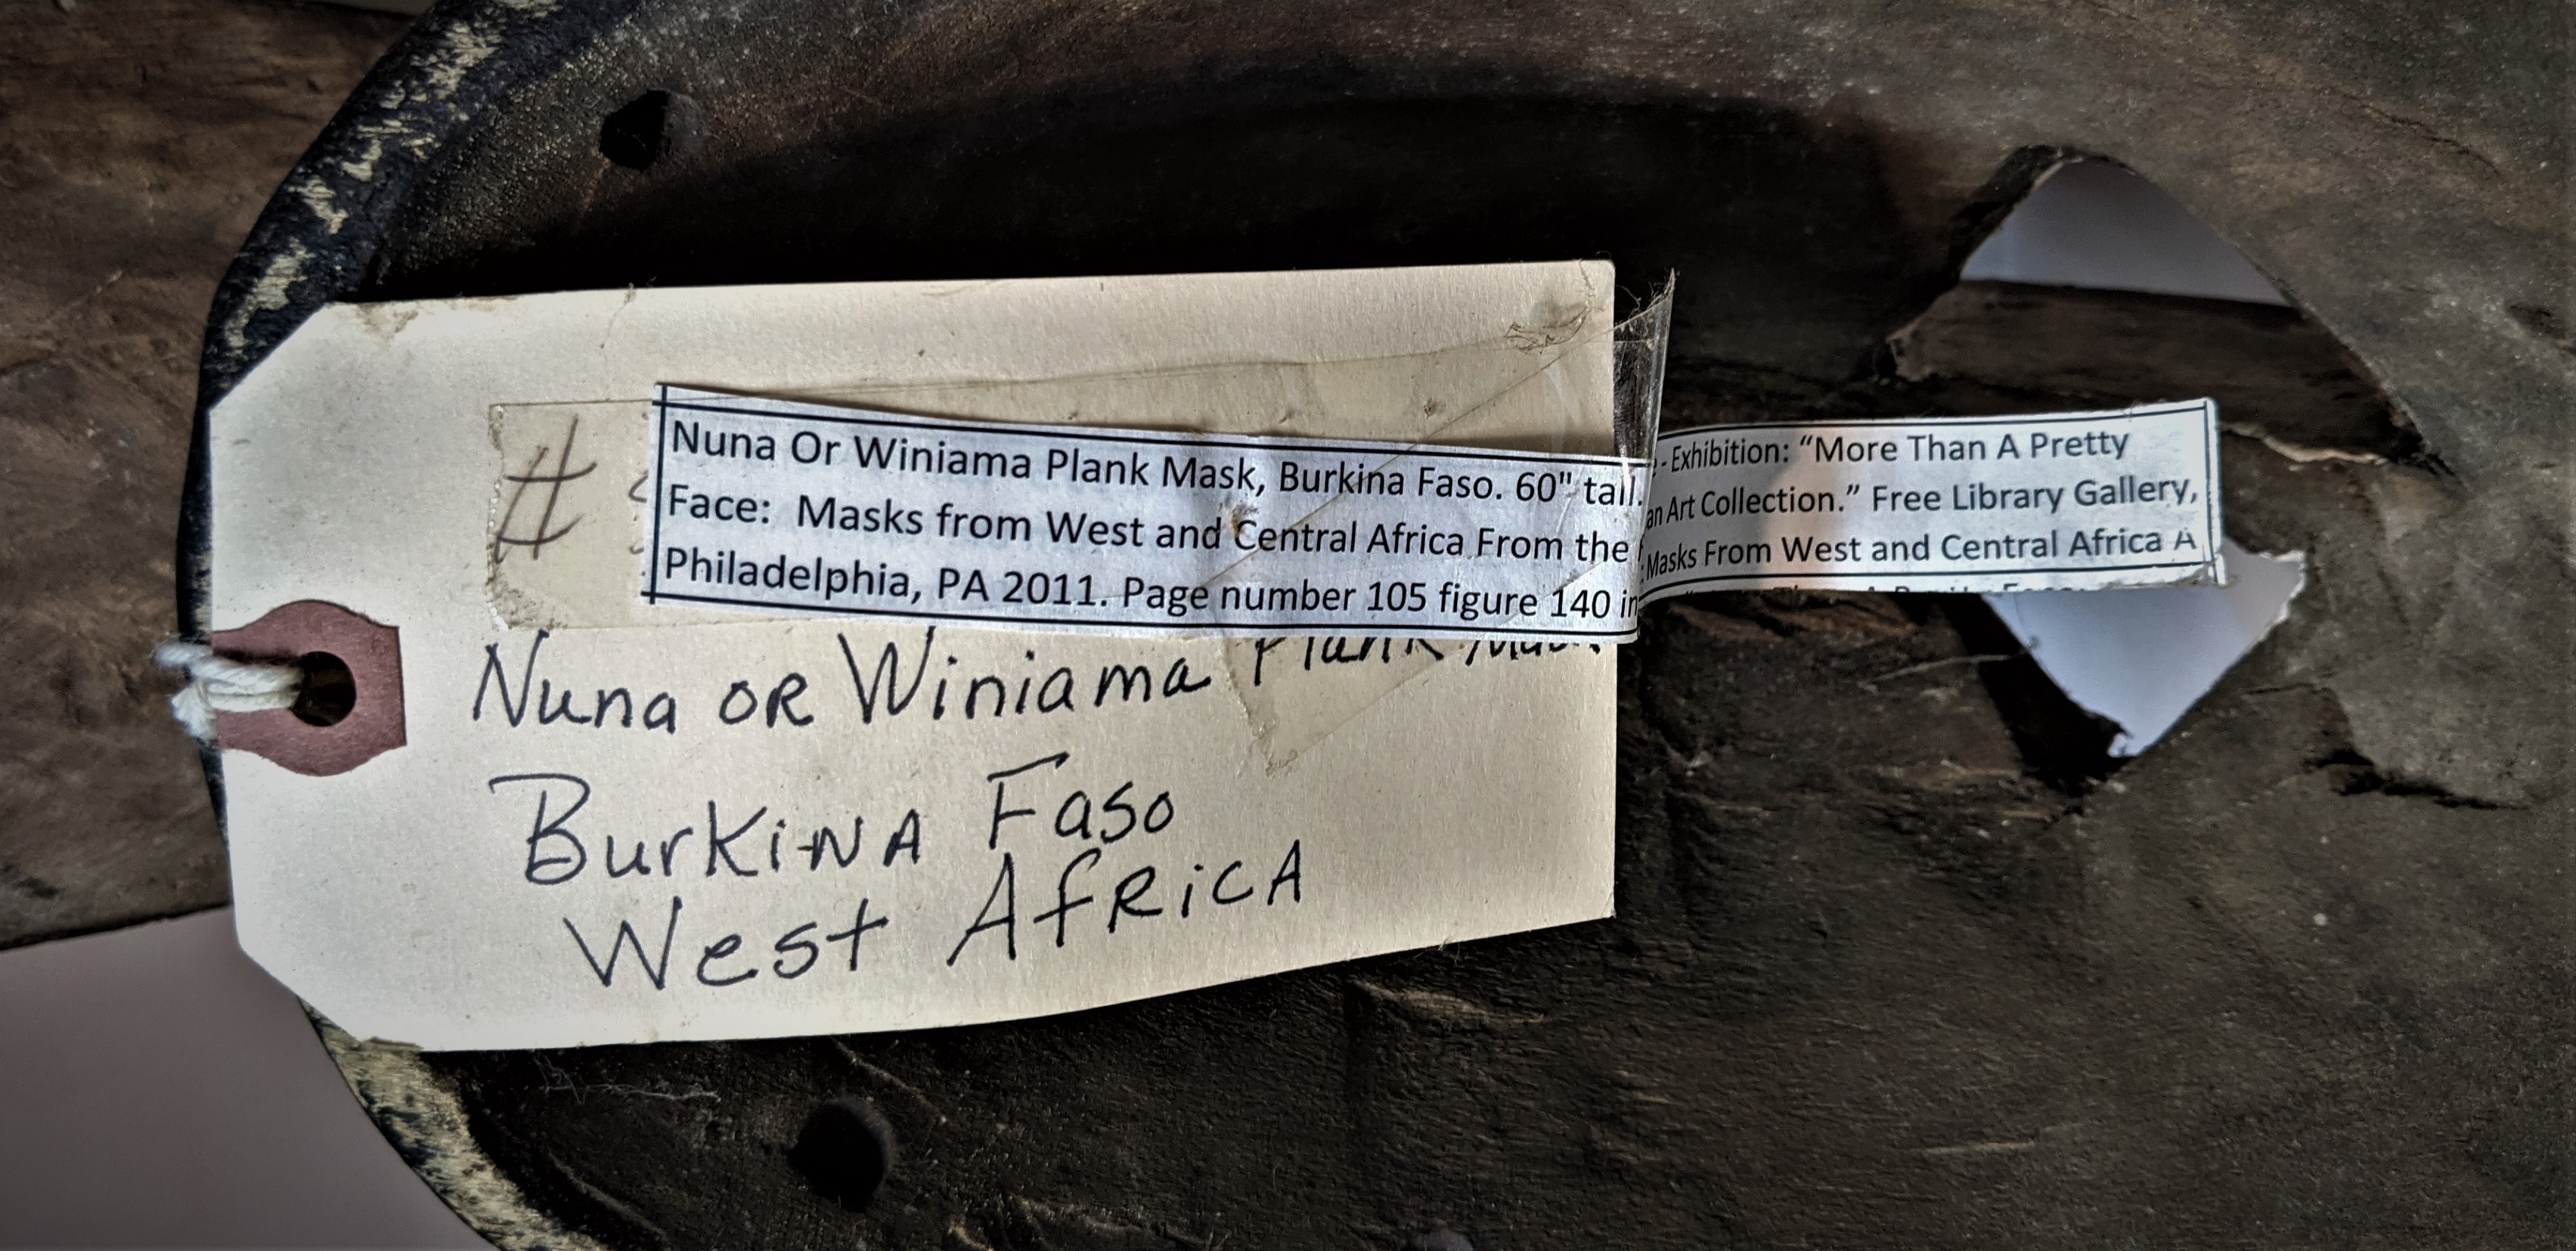 #
Nuna Or Winiama Plank Mask, Burkina Faso. 60" tall. - Exhibition: “More Than A Pretty
Face: Masks from West and Central Africa From the an Art Collection.” Free Library Gallery,
Philadelphia, PA 2011. Page number 105 figure 140 in Masks From West and Central Africa A
Nuna OR Winiama Plank Mask
BurKiNA Faso
West AfRiCA